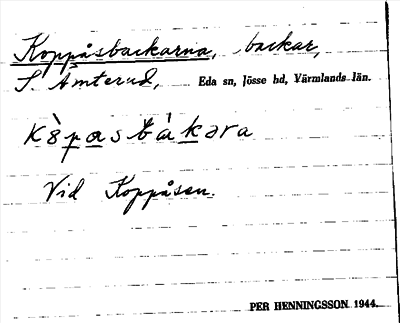 Koppåsbackarna, backar,
S. Åmterud, Eda sn, Jösse hd, Värmlands län.
Vid Koppåsen.
PER HENNINGSSON 1944.